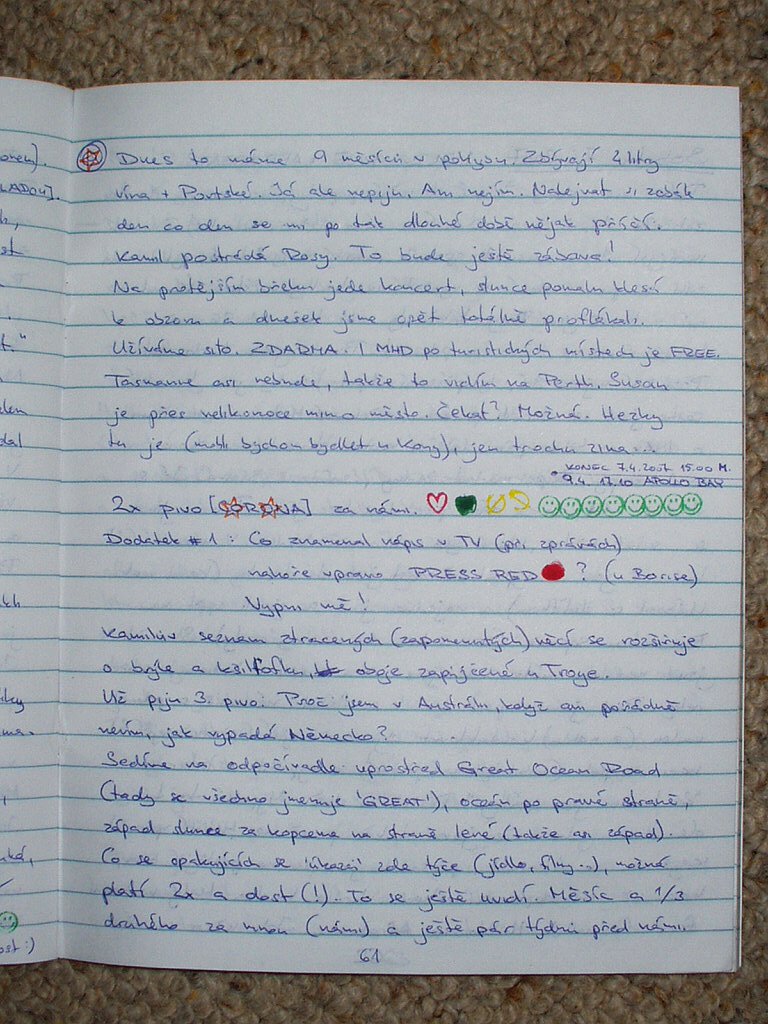 orem].
LADOU].
st
t."
dal
ost :)
Dnes to máme 9 měsíců v pohybu. Zbývají 2 litry
vína + Portské. Já ale nepiju. Ani nejím. Nalejvat si žabák
den co den se mi po tak dlouhé době nějak příčí.
Kamil postrádá Rosy. To bude ještě zábava!
Na protějším břehu jede koncert, slunce pomalu klesá
k obzoru a dnešek jsme opět totálně proflákali.
Užíváme si to. ZDARMA. I MHD po turistických místech je FREE.
Tasmanie asi nebude, takže to vidím na Perth. Susan
je přes velikonoce mimo město. Čekat? Možná. Hezky
tu je (mohli bychom bydlet u Kony), jen trochu zima...
KONEC 7.4.2007 15.00 M.
• 9.4. 17.10 APOLLO BAY
2x pivo [CORONA] za námi.
Dodatek #1: Co znamenal nápis v TV (při zprávách)
nahoře vpravo PRESS RED ? (u Borise)
Vypni mě!
Kamilův seznam ztracených (zapomenutých) věcí se rozšiřuje
o brýle a kšiltofku, oboje zapůjčené u Troye.
Už piju 3. pivo. Proč jsem v Austrálii, když ani pořádně
nevím, jak vypadá Německo?
Sedíme na odpočívadle uprostřed Great Ocean Road
(tady se všechno jmenuje 'GREAT'), oceán po pravé straně,
západ slunce za kopcema na straně levé (takže asi západ).
Co se opakujících se 'úkazů' zde týče (jídlo, filmy...), možná
platí 2x a dost (!). To se ještě uvidí. Měsíc a 1/3
druhého za mnou (námi) a ještě pár týdnů před námi.
61